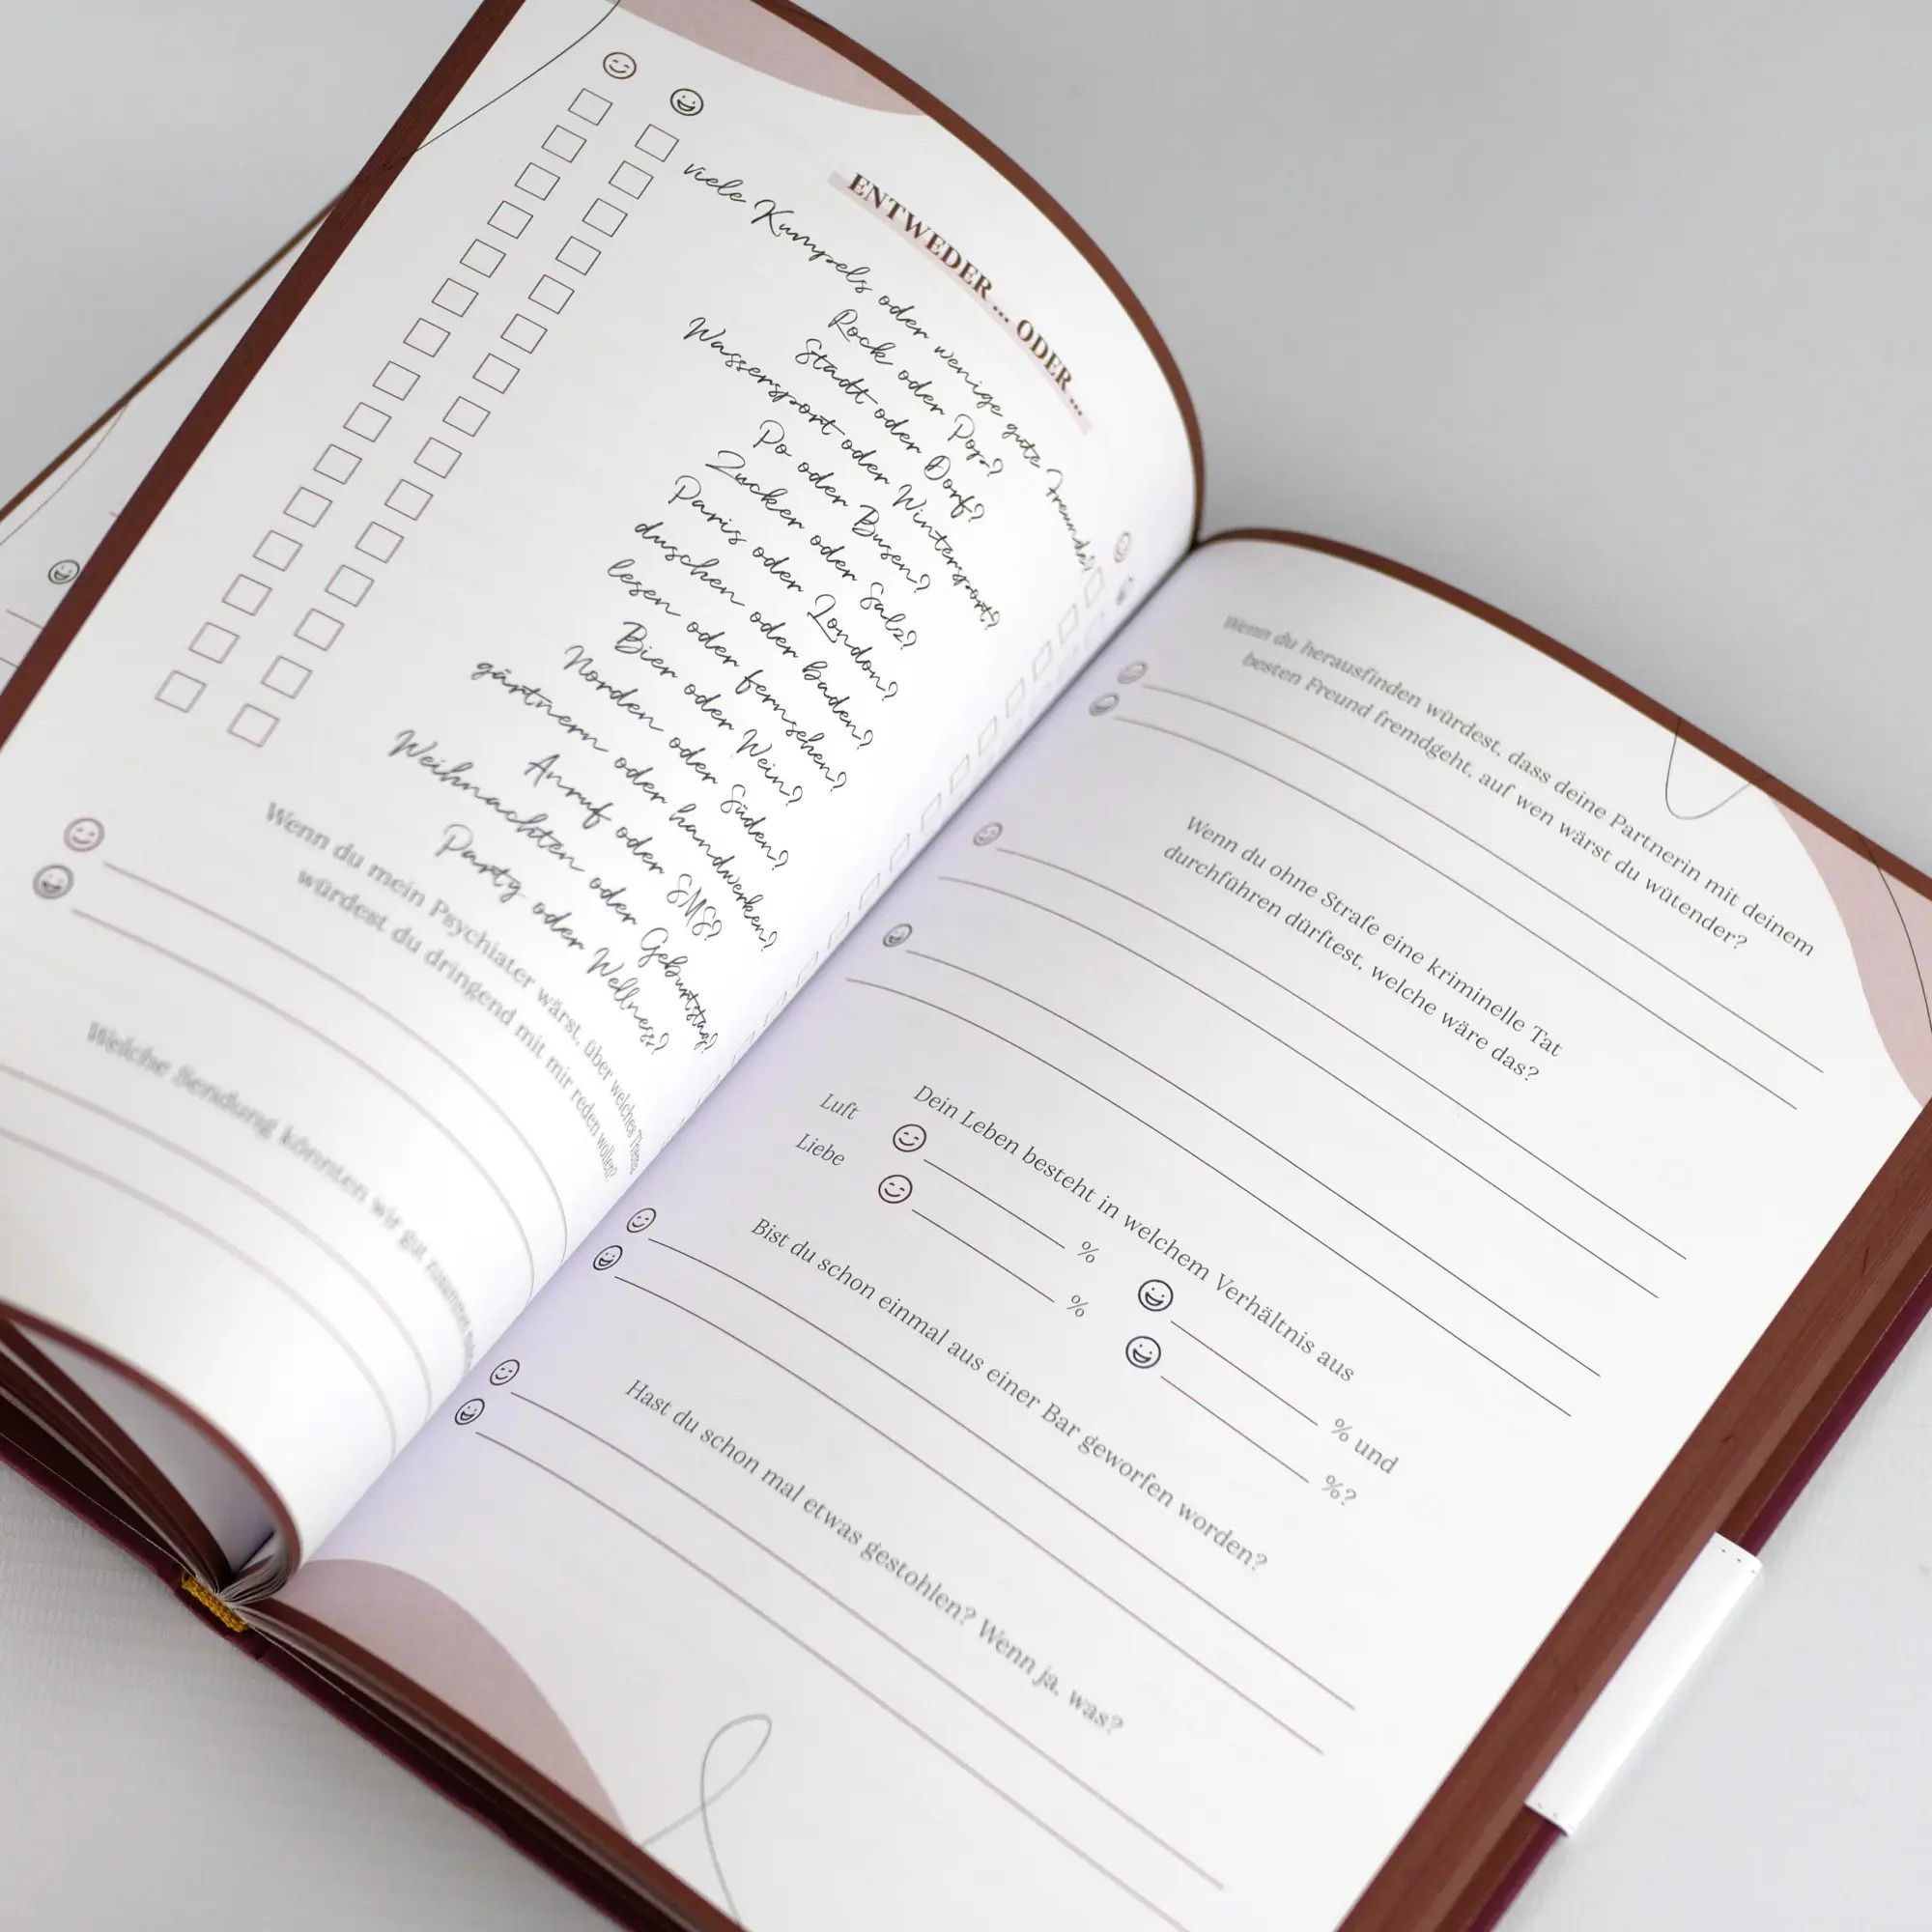 ENTWEDER ... ODER ...
viele Kumpels oder wenige gute Freunde?
Rock oder Pop?
Stadt oder Dorf?
Wassersport oder Wintersport?
Po oder Busen?
Zucker oder Salz?
Paris oder London?
duschen oder baden?
lesen oder fernsehen?
Bier oder Wein?
Norden oder Süden?
gärtnern oder handwerken?
Anruf oder SMS?
Weihnachten oder Geburtstag?
Party oder Wellness?
Wenn du mein Psychiater wärst, über welches Thema
würdest du dringend mit mir reden wollen?
Welche Sendung könnten wir gut
Wenn du herausfinden würdest, dass deine Partnerin mit deinem
besten Freund fremdgeht, auf wen wärst du wütender?
Wenn du ohne Strafe eine kriminelle Tat
durchführen dürftest, welche wäre das?
Dein Leben besteht in welchem Verhältnis aus
Luft % % und
Liebe % %?
Bist du schon einmal aus einer Bar geworfen worden?
Hast du schon mal etwas gestohlen? Wenn ja, was?